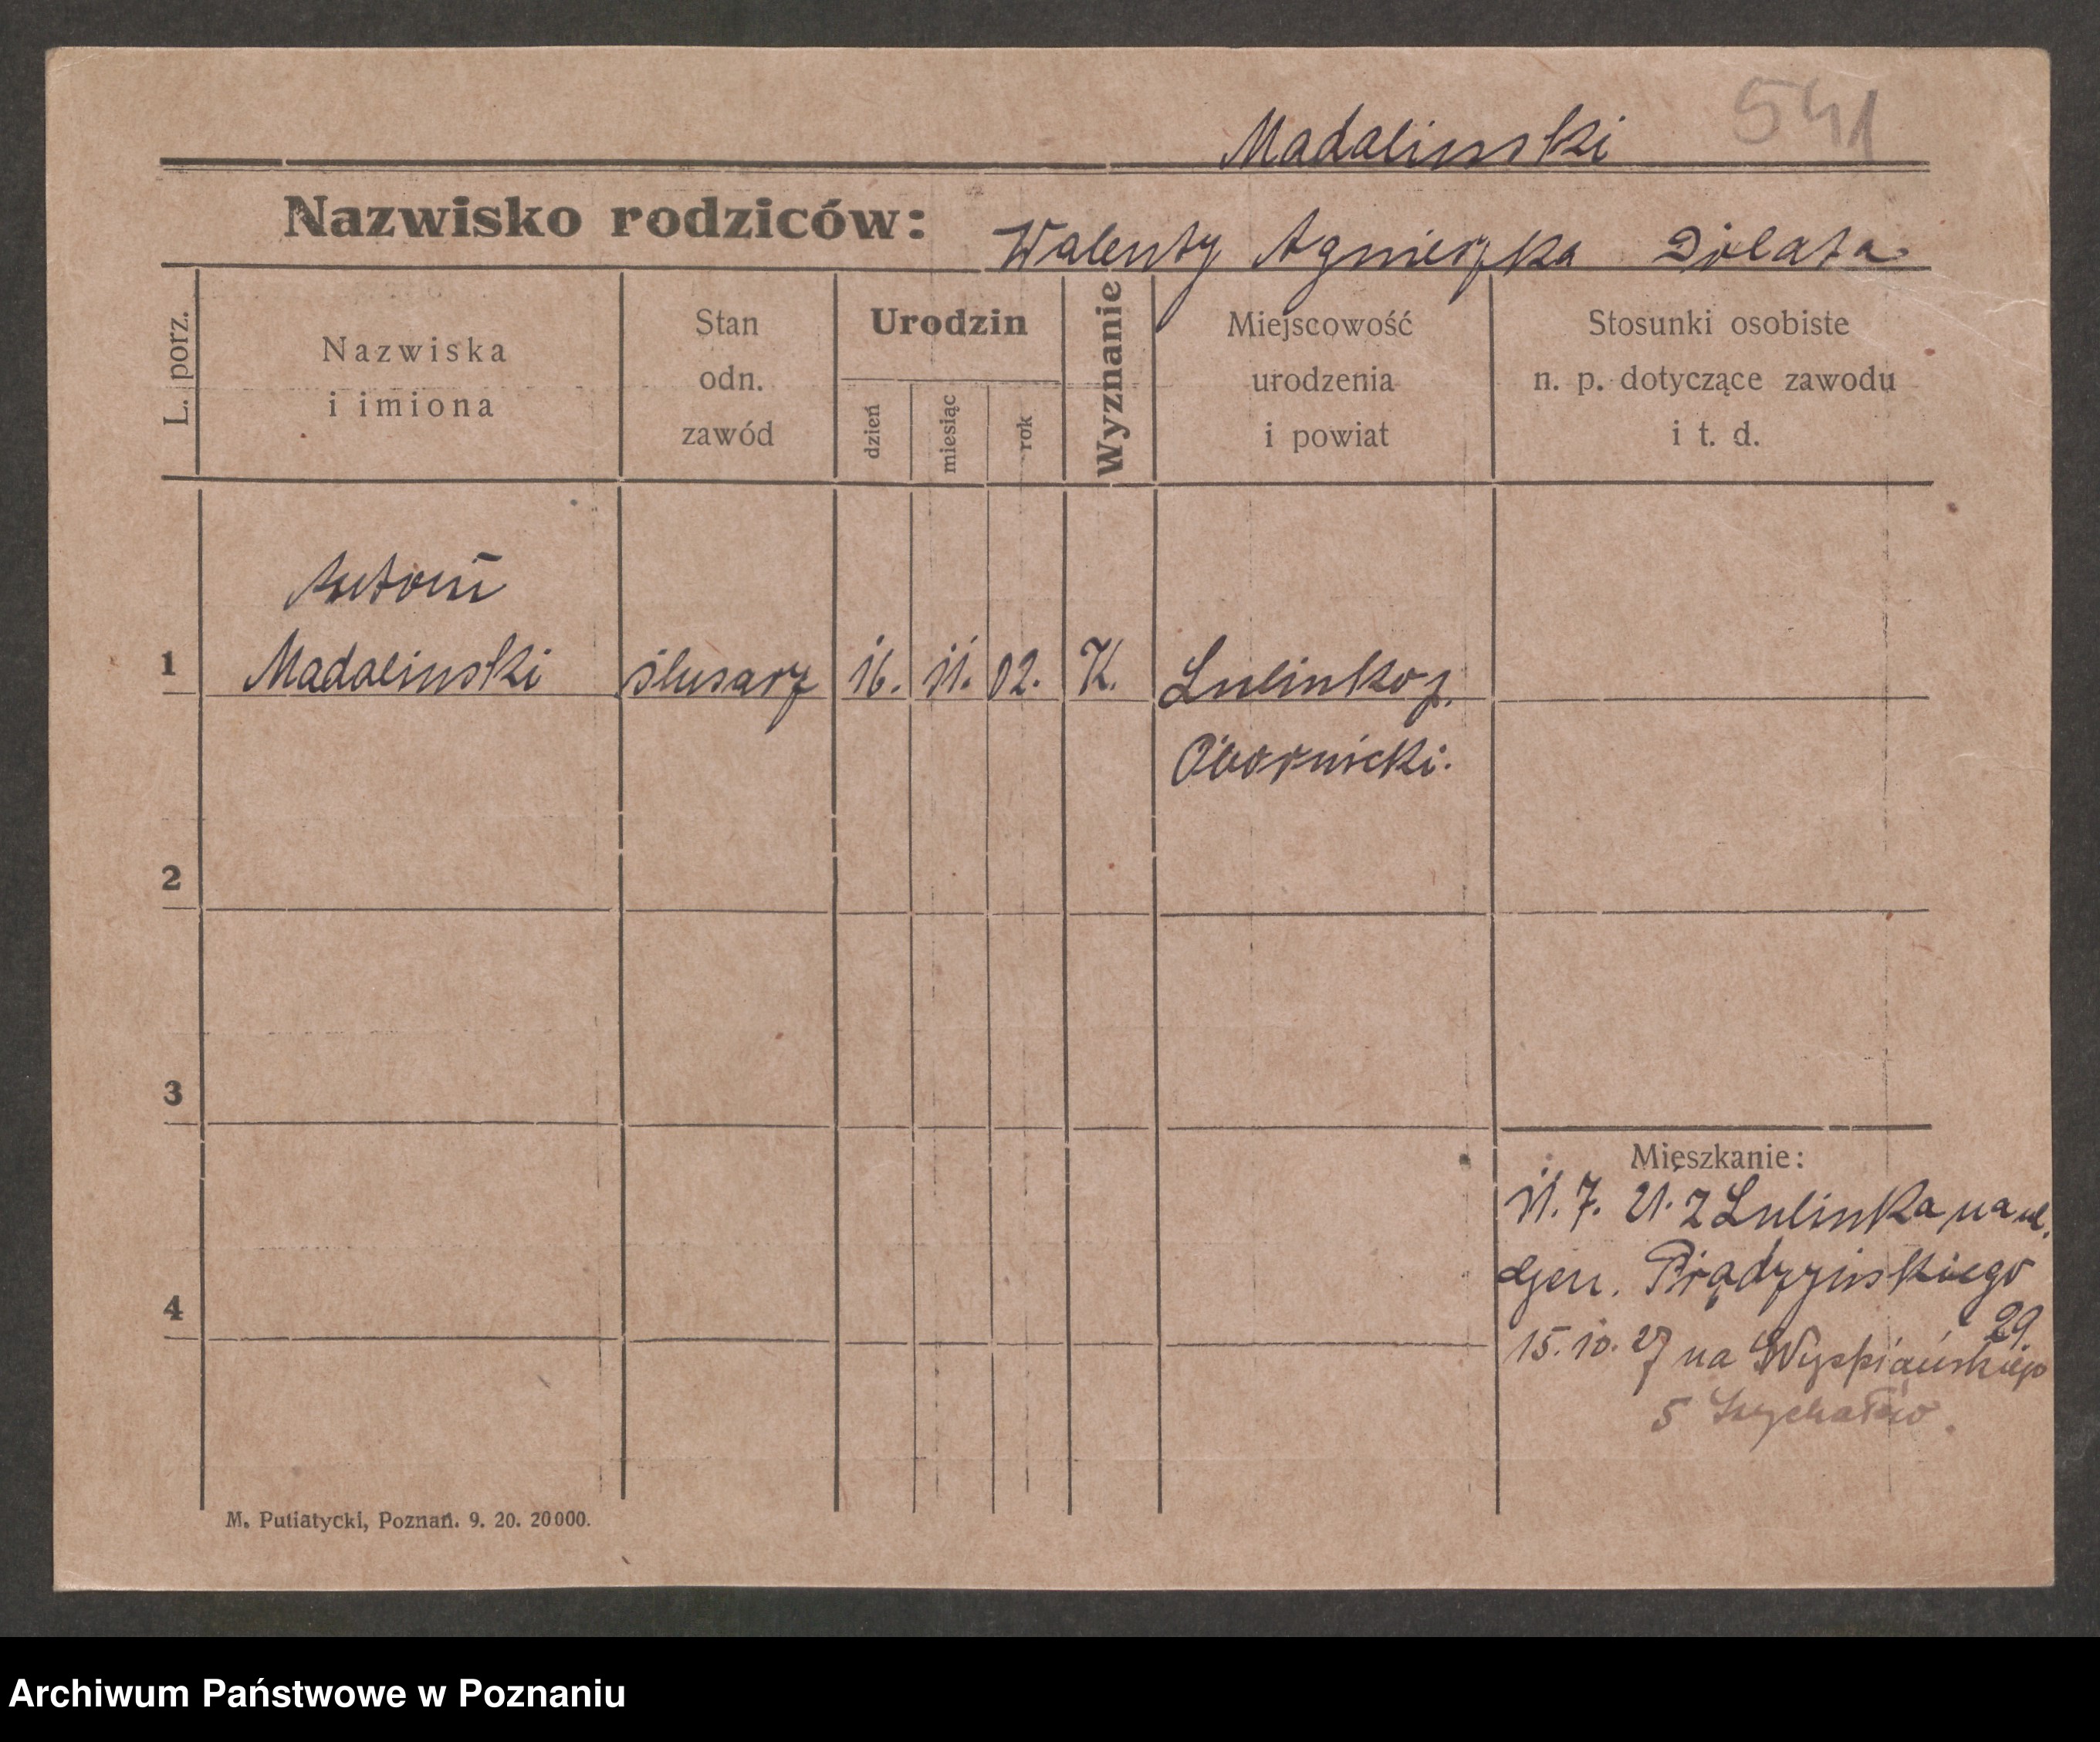 541
Madalinski
Nazwisko rodziców: Walenty Agnieszka Dolata
L. porz.
Nazwiska
i imiona
Stan
odn.
zawód
Urodzin
dzień
miesiąc
rok
Wyznanie
Miejscowość
urodzenia
i powiat
Stosunki osobiste
n. p. dotyczące zawodu
i t. d.
Antoni
1 Madalinski ślusarz 16. 11. 02. K. Lulinko p.
Obornicki.
2
3
4
Mieszkanie:
11. 7. 21. z Lulinka na ul.
gen. Prądzyinskiego
29
15. 10. 27 na Wyspiańskiego
5
M. Putiatycki, Poznań. 9. 20. 20000.
Archiwum Państwowe w Poznaniu